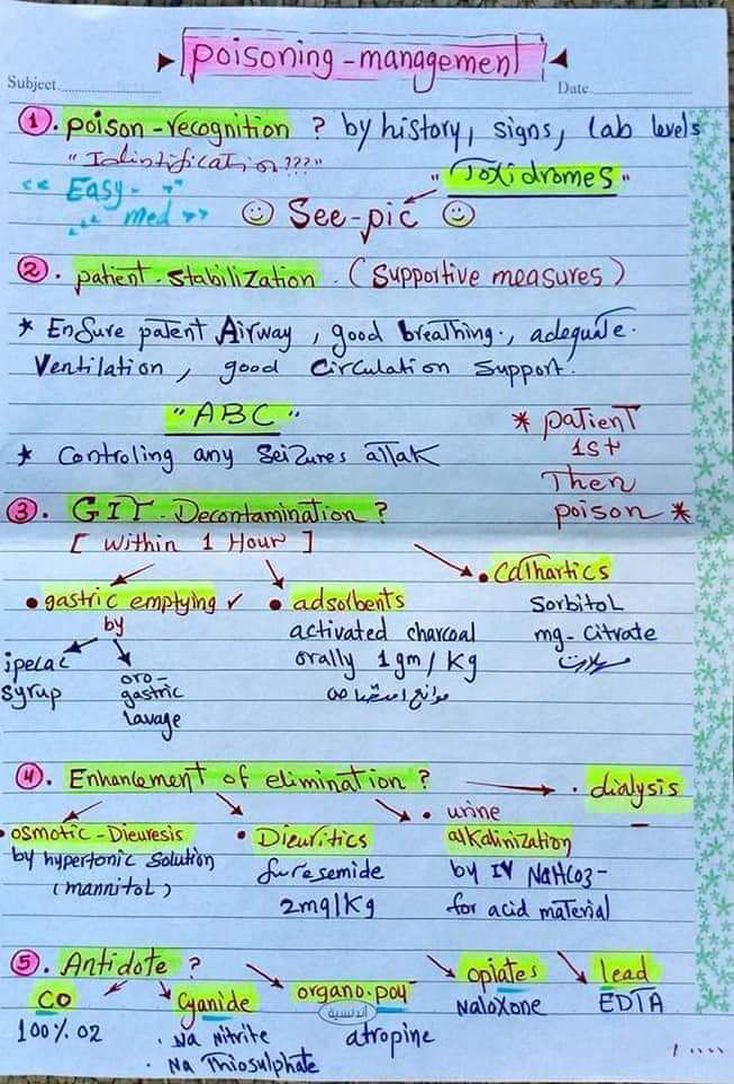 poisoning-management
Subject
Date
1. poison-recognition ? by history, signs, lab levels
"Idintification???"
"Toxidromes"
<< Easy-
med >>
See-pic
2. patient-stabilization. (supportive measures)
* Ensure patent Airway, good breathing., adequate.
Ventilation, good Circulation support.
"ABC"
* Controling any Seizures attak
* patient
1st
Then
poison *
3. GIT-Decontamination?
[ within 1 Hour ]
• gastric emptying ✓ • adsorbents • Cathartics
by
ipecac syrup
oro-gastric lavage
activated charcoal
orally 1gm/Kg
موانع امتصاص
Sorbitol
mg-Citrate
مسهلات
4. Enhancement of elimination?
• dialysis
• osmotic-Dieuresis
by hypertonic solution
(mannitol)
• Dieuritics
furesemide
2mg/Kg
• urine
alkalinization
by IV NaHCO3-
for acid material
5. Antidote ?
CO
100% O2
Cyanide
. Na Nitrite
. Na Thiosulphate
organo.poy
أندلسية
atropine
opiates
Naloxone
Lead
EDTA